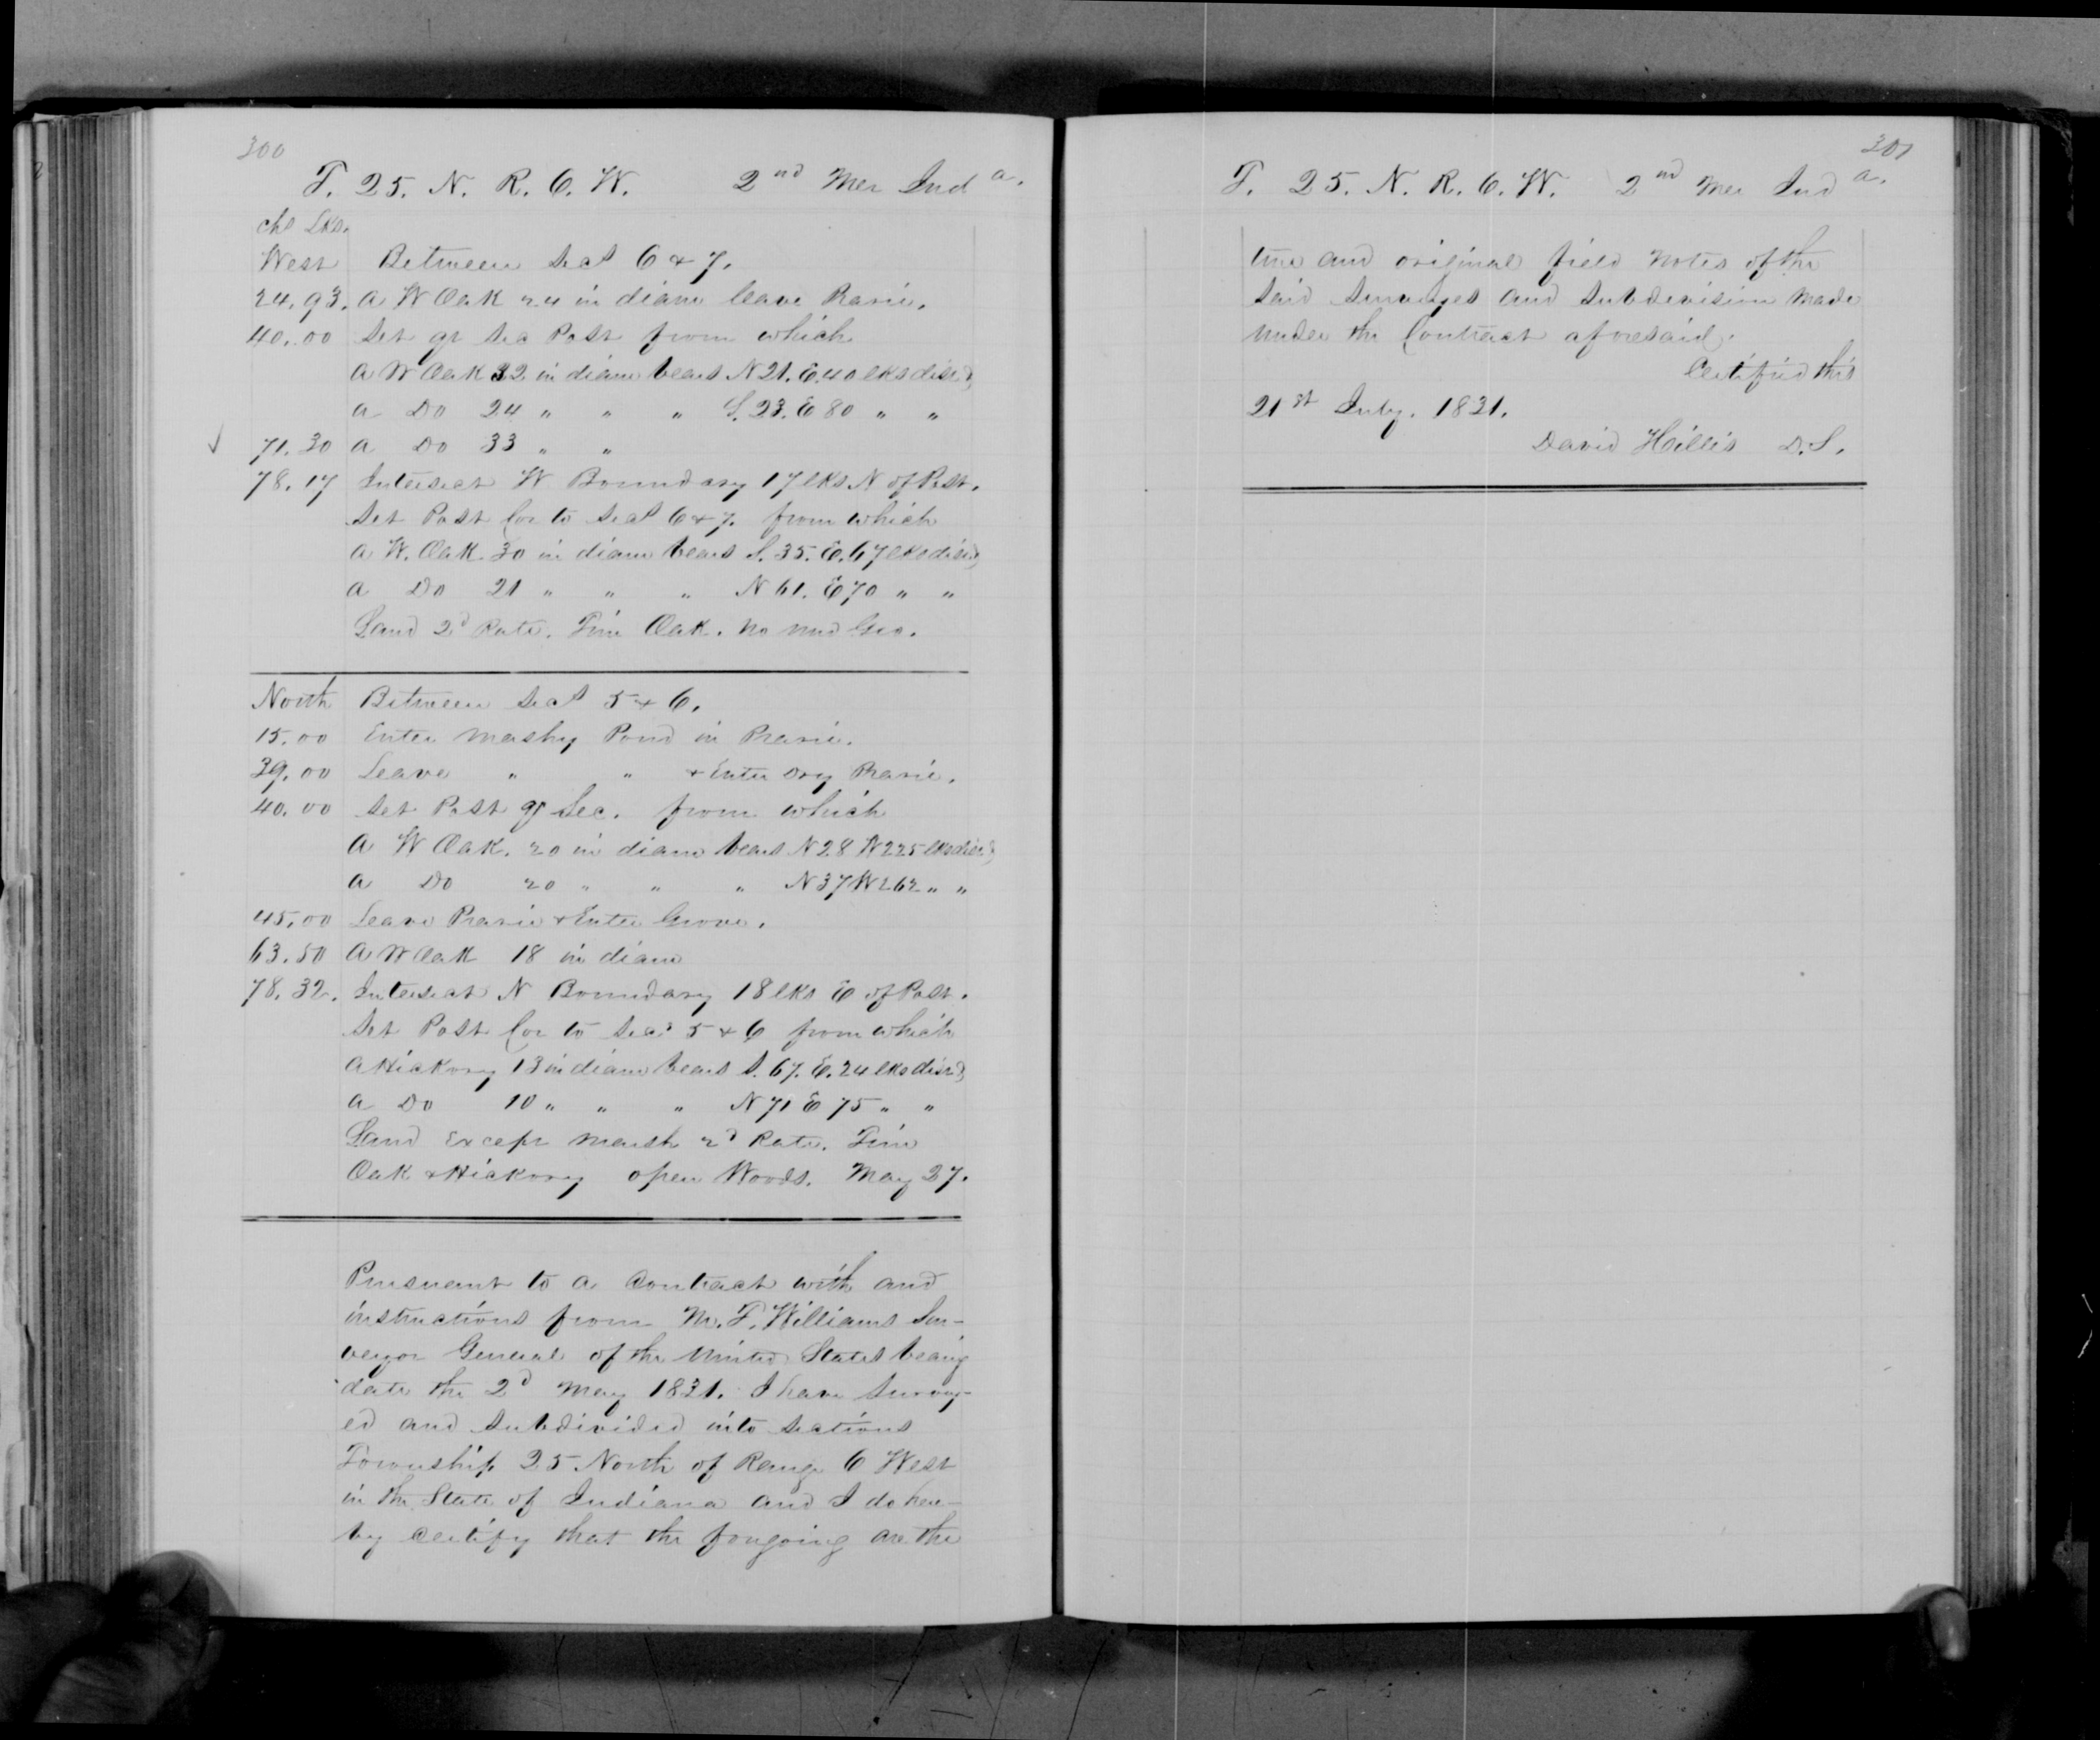 300
T. 25. N. R. 6. W. 2nd Mer Inda.
chs Lks.
West Between Secs 6 & 7.
24.93. A W Oak 24 in diam leave Prarie.
40.00 Set qr Sec Post from which
A W Oak 32 in diam bears N 21. E. 40 lks dist &
a Do 24 " " " S. 23. E 80 " "
71.30 a Do 33 " "
78.17 Intersect W Boundary 17 lks N of Post.
Set Post Cor to Secs 6 & 7. from which
a W. Oak 30 in diam bears S. 35. E. 67 lks dist &
a Do 21 " " " N 61. E 70 " "
Land 2d Rate. Tim Oak. no und Gro.
North Between Secs 5 & 6.
15.00 Enter Marshy Pond in Prarie.
39.00 Leave " " & Enter Dry Prarie.
40.00 Set Post qr Sec. from which
A W Oak. 20 in diam bears N 28 W 225 lks dist &
a Do 20 " " " N 37 W 262 " "
45.00 Leave Prarie & Enter Grove.
63.50 A W Oak 18 in diam
78.32. Intersect N Boundary 18 lks E of Post.
Set Post Cor to Secs 5 & 6 from which
A Hickory 13 in diam bears S. 67. E. 24 lks dist &
a Do 10 " " " N 71 E 75 " "
Land Except Marsh 2d Rate. Tim
Oak & Hickory open Woods. May 27.
Pursuant to a Contract with and
instructions from M. T. Williams Sur-
veyor General of the United States bearing
date the 2d May 1831. I have Survey-
ed and Subdivided into Sections
Township 25 North of Range 6 West
in the State of Indiana and I do here-
by Certify that the forgoing are the
301
T. 25. N. R. 6. W. 2nd Mer Inda.
true and original field notes of the
Said Surveyes and Subdivision made
under the Contract aforesaid.
Certified this
21st July. 1831.
David Hillis D. S.